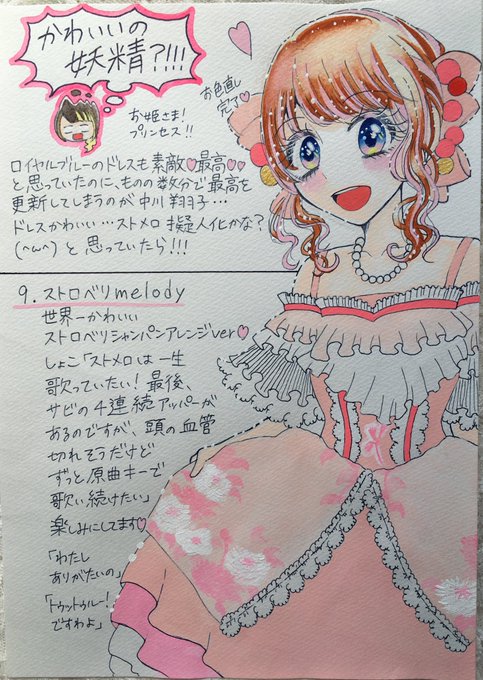 かわいいの
妖精?!!!
お色直し
完了♡
お姫さま!
プリンセス!!
ロイヤルブルーのドレスも素敵♡最高♡♡
と思っていたのに、ものの数分で最高を
更新してしまうのが中川翔子…
ドレスかわいい…ストメロ擬人化かな?
(^ω^)と思っていたら!!!
9.ストロベリmelody
世界一かわいい
ストロベリシャンパンアレンジver♡
しょこ「ストメロは一生
歌っていたい!最後、
サビの4連続アッパーが
あるのですが、頭の血管
切れそうだけど
ずっと原曲キーで
歌い続けたい」
楽しみにしてます♡
「わたし
ありがたいの」
「トゥットゥルー!
ですわよ」